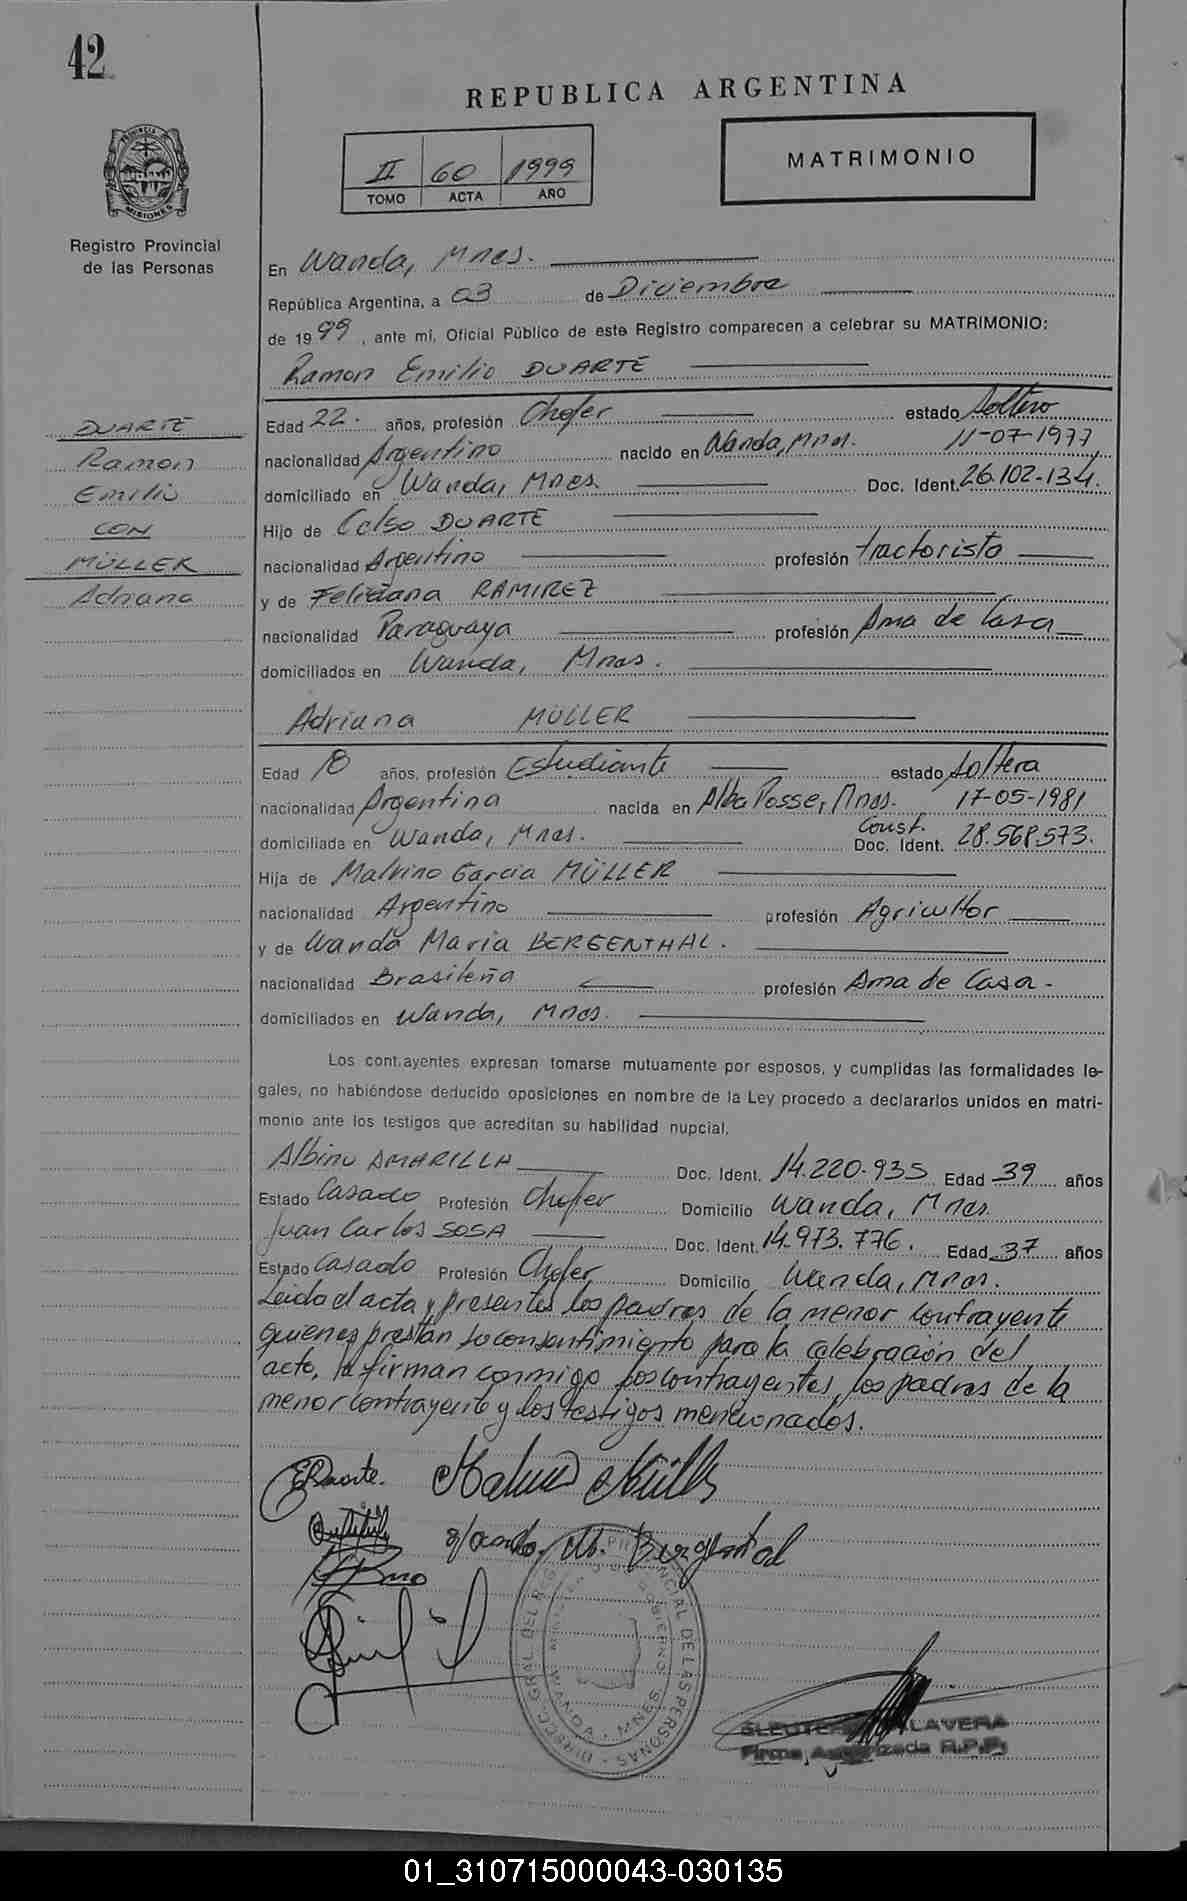 42
REPUBLICA ARGENTINA
II 60 1999
TOMO ACTA AÑO
MATRIMONIO
PROVINCIA DE MISIONES
Registro Provincial
de las Personas
DUARTE
Ramon
Emilio
CON
MÜLLER
Adriana
En Wanda, Mnes.
República Argentina, a 03 de Diciembre
de 1999, ante mi, Oficial Público de este Registro comparecen a celebrar su MATRIMONIO:
Ramon Emilio DUARTE
Edad 22. años, profesión Chofer estado Soltero
nacionalidad Argentino nacido en Wanda, Mnes. 11-07-1977
domiciliado en Wanda, Mnes. Doc. Ident. 26.102.134.
Hijo de Celso DUARTE
nacionalidad Argentino profesión tractorista
y de Feliciana RAMIREZ
nacionalidad Paraguaya profesión Ama de Casa
domiciliados en Wanda, Mnes.
Adriana MÜLLER
Edad 18 años, profesión Estudiante estado Soltera
nacionalidad Argentina nacida en Alba Posse, Mnes. 17-05-1981
domiciliada en Wanda, Mnes. Const. Doc. Ident. 28.568.573.
Hija de Malvino Garcia MÜLLER
nacionalidad Argentino profesión Agricultor
y de Wanda Maria BERGENTHAL.
nacionalidad Brasileña profesión Ama de Casa.
domiciliados en Wanda, Mnes.
Los contrayentes expresan tomarse mutuamente por esposos, y cumplidas las formalidades le-
gales, no habiéndose deducido oposiciones en nombre de la Ley procedo a declararlos unidos en matri-
monio ante los testigos que acreditan su habilidad nupcial.
Albino AMARILLA Doc. Ident. 14.220.935 Edad 39 años
Estado Casado Profesión Chofer Domicilio Wanda, Mnes.
Juan Carlos SOSA Doc. Ident. 14.973.776. Edad 37 años
Estado Casado Profesión Chofer Domicilio Wanda, Mnes.
Leida el acta y presentes los padres de la menor contrayente
quienes prestan su consentimiento para la celebración del
acto, la firman conmigo los contrayentes, los padres de la
menor contrayente y los testigos mencionados.
EDuarte.
DIRECC. GRAL DEL REG. PROVINCIAL DE LAS PERSONAS
WANDA - MNES.
Firma Autorizada R.P.P.
01_310715000043-030135